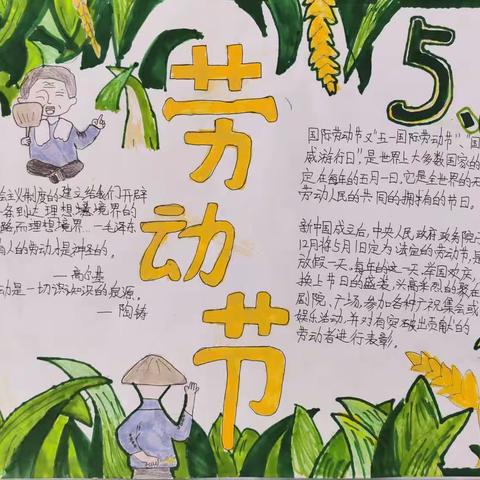 劳动节
5.
会主义制度的建立给我们开辟
一条到达理想境界的
路,而理想境界 一毛泽东
人的劳动才是神圣的。
—高尔基
动是一切知识的根源。
—陶铸
国际劳动节又"五一国际劳动节"、国
威游行日",是世界上大多数国家的
定在每年的五月一日。它是全世界的
劳动人民的共同的拥有的节日。
新中国成立后,中央人民政府政务院
12月将5月1日定为法定的劳动节,是
放假一天。每年的这一天,举国欢庆,
换上节日的盛装,兴高采烈的聚在
剧院、广场,参加各种庆祝集会或
娱乐活动,并对有突破出贡献的
劳动者进行表彰。